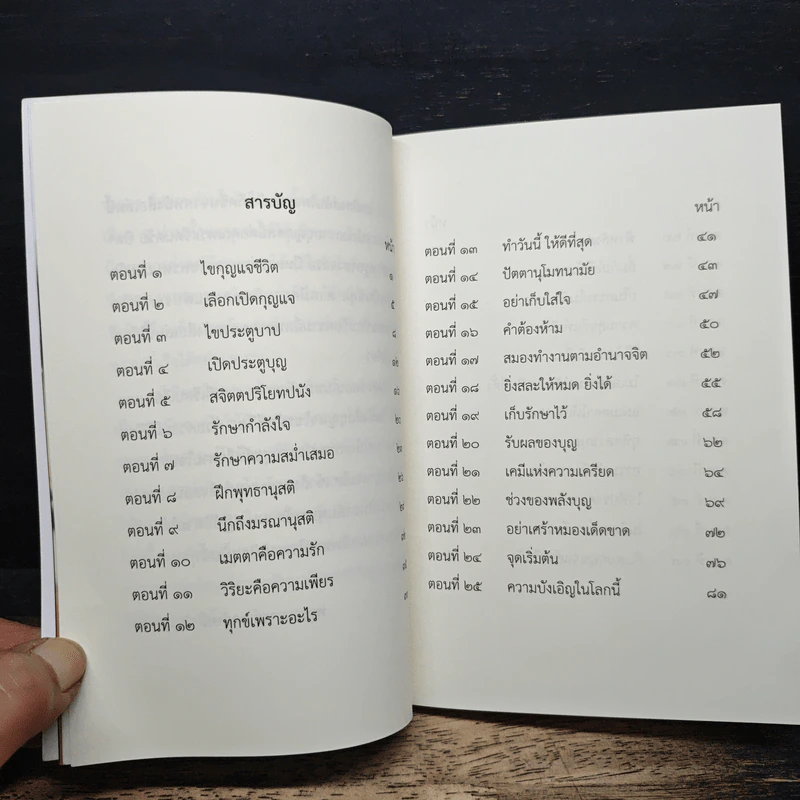 สารบัญ
หน้า
ตอนที่ ๑ ไขกุญแจชีวิต ๑
ตอนที่ ๒ เลือกเปิดกุญแจ ๕
ตอนที่ ๓ ไขประตูบาป ๘
ตอนที่ ๔ เปิดประตูบุญ
ตอนที่ ๕ สจิตตปริโยทปนัง
ตอนที่ ๖ รักษากำลังใจ
ตอนที่ ๗ รักษาความสม่ำเสมอ
ตอนที่ ๘ ฝึกพุทธานุสติ
ตอนที่ ๙ นึกถึงมรณานุสติ
ตอนที่ ๑๐ เมตตาคือความรัก
ตอนที่ ๑๑ วิริยะคือความเพียร
ตอนที่ ๑๒ ทุกข์เพราะอะไร
หน้า
ตอนที่ ๑๓ ทำวันนี้ ให้ดีที่สุด ๔๑
ตอนที่ ๑๔ ปัตตานุโมทนามัย ๔๓
ตอนที่ ๑๕ อย่าเก็บใส่ใจ ๔๗
ตอนที่ ๑๖ คำต้องห้าม ๕๐
ตอนที่ ๑๗ สมองทำงานตามอำนาจจิต ๕๒
ตอนที่ ๑๘ ยิ่งสละให้หมด ยิ่งได้ ๕๕
ตอนที่ ๑๙ เก็บรักษาไว้ ๕๘
ตอนที่ ๒๐ รับผลของบุญ ๖๒
ตอนที่ ๒๑ เคมีแห่งความเครียด ๖๔
ตอนที่ ๒๒ ช่วงของพลังบุญ ๖๙
ตอนที่ ๒๓ อย่าเศร้าหมองเด็ดขาด ๗๒
ตอนที่ ๒๔ จุดเริ่มต้น ๗๖
ตอนที่ ๒๕ ความบังเอิญในโลกนี้ ๘๑